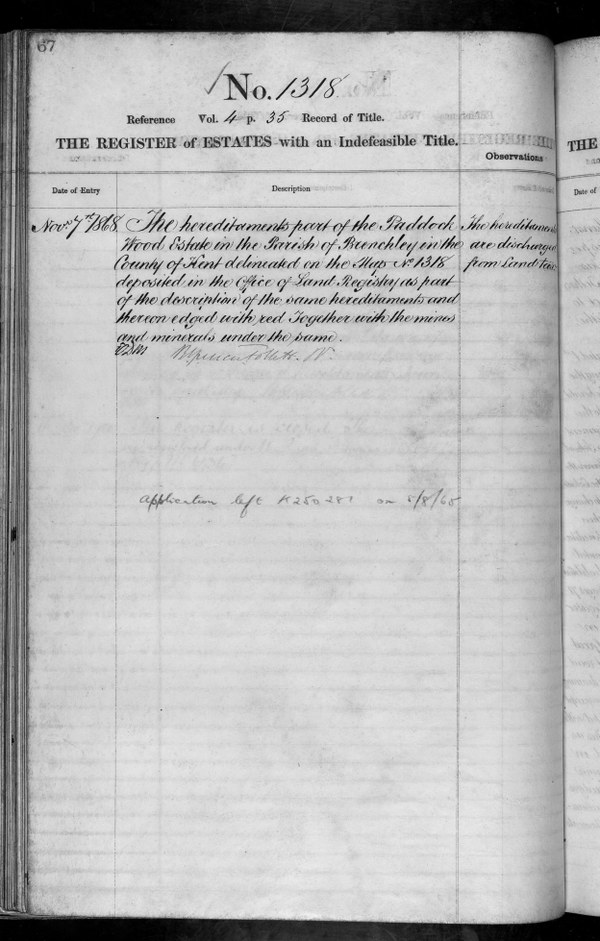 67
No. 1318
Reference Vol. 4 p. 35 Record of Title.
THE REGISTER of ESTATES with an Indefeasible Title.
Observations
Date of Entry
Description
Novr. 7th 1868
The hereditaments part of the Paddock
Wood Estate in the Parish of Brenchley in the
County of Kent delineated on the Map No. 1318
deposited in the Office of Land Registry as part
of the description of the same hereditaments and
thereon edged with red Together with the mines
and minerals under the same.
The hereditaments
are discharged
from Land tax
Application left K250281 on 5/8/65
THE
Date of